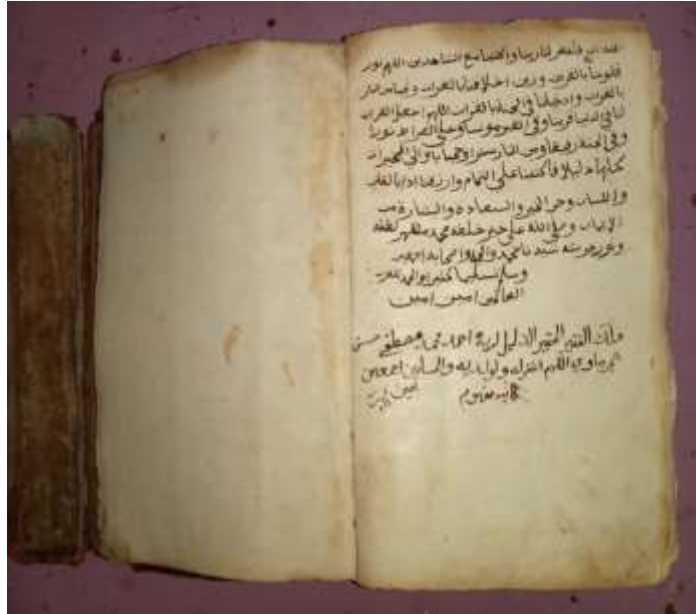 فاغفر لنا ربنا واكتبنا مع الشاهدين اللهم نور
قلوبنا بالقران وزين اخلاقنا بالقران ونجنا من النار
بالقران وادخلنا في الجنة بالقران اللهم اجعل القران
لنا في الدنيا قرينا وفي القبر مونسا وعلى الصراط نورا
وفي الجنة رفيقا ومن النار سترا وحجابا والى الخيرات
كلها دليلا فاكتبنا على التمام وارزقنا ادا بالقلب
واللسان وحب الخير والسعادة والبشارة من
الايمان وصلى الله على خير خلقه محمد مظهر لطفه
ونور عرشه سيدنا محمد واله واصحابه اجمعين
وسلم تسليما كثيرا
العالمين امين امين
الفقير الحقير الذليل لربه احمد محمد مصطفى حسن
اللهم اغفر له ولوالديه والمسلمين اجمعين
امين